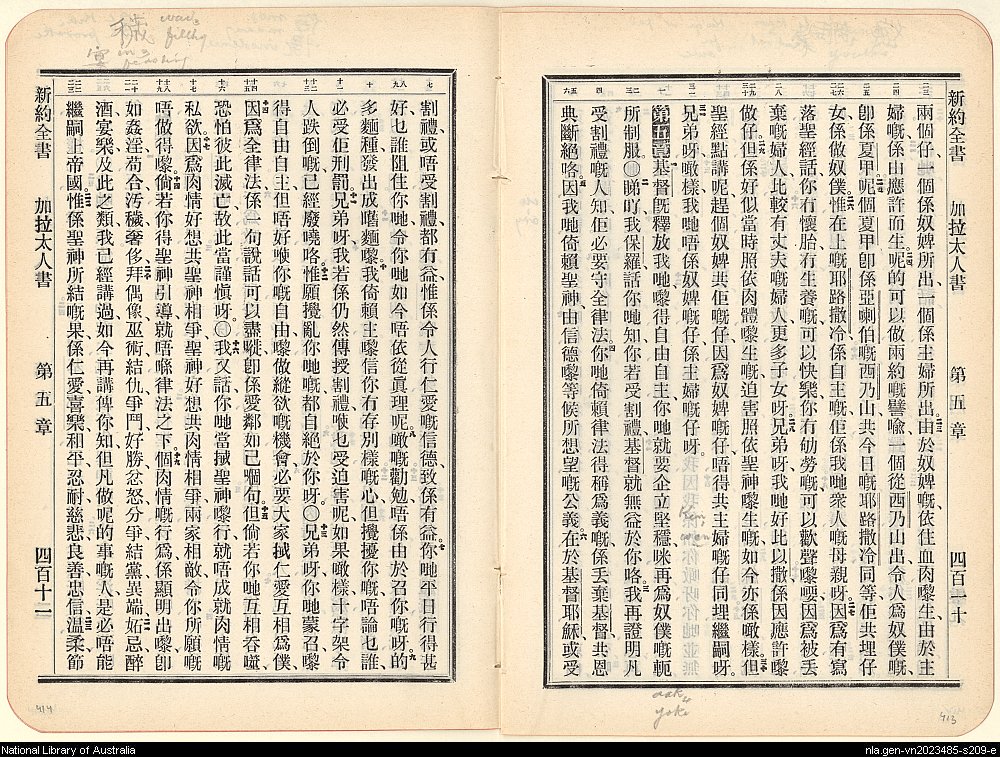 新約全書 加拉太人書 第五章 四百十一
兩個仔一個係奴婢所出一個係主婦所出由於奴婢嘅依住血肉嚟生由於主
婦嘅係由應許而生呢的可以做兩約嘅譬喻一個從西乃山出令人為奴僕嘅
卽係夏甲呢個夏甲卽係亞喇伯嘅西乃山共今日嘅耶路撒冷同等佢共埋仔
女係做奴僕惟在上嘅耶路撒冷係自主嘅佢係我哋衆人嘅母親呀因為有寫
落聖經話你冇懷胎冇生養嘅可以快樂你冇劬勞嘅可以歡聲嚟嗌因為被丟
棄嘅婦人比較有丈夫嘅婦人更多子女呀兄弟呀我哋好比以撒係因應許嚟
做仔但係好似當時照依肉體嚟生嘅迫害照依聖神嚟生嘅如今亦係噉樣但
聖經點講呢趕個奴婢共佢嘅仔因為奴婢嘅仔唔得共主婦嘅仔同埋繼嗣呀
兄弟呀噉樣我哋唔係奴婢嘅仔係主婦嘅仔呀
第五章基督旣釋放我哋嚟得自由自主你哋就要企立堅穩咪再為奴僕嘅軛
所制服〇睇吖我保羅話你哋知你若受割禮基督就無益於你咯我再證明凡
受割禮嘅人知佢必要守全律法你哋倚賴律法得稱爲義嘅係丟棄基督共恩
典斷絕咯因我哋倚賴聖神由信德嚟等候所想望嘅公義在於基督耶穌或受
aak4
yoke
413
新約全書 加拉太人書 第五章 四百十二
割禮或唔受割禮都冇益惟係令人行仁愛嘅信德致係有益你哋平日行得甚
好乜誰阻住你哋令你哋如今唔依從眞理呢噉嘅勸勉唔係由於召你嘅呀的
多麵種發出成嚿麵嚟我倚賴主嚟信你冇存別樣嘅心但攪擾你嘅唔論乜誰
必受佢刑罰兄弟呀我若係仍然傳授割禮喉乜受迫害呢如果噉樣十字架令
人跌倒嘅已經廢曉咯惟願攪亂你哋嘅都自絕於你呀〇兄弟呀你哋蒙召嚟
得自由自主但唔好喉你嘅自由嚟做縱欲嘅機會必要大家拭仁愛互相爲僕
因爲全律法係一句說話可以盡嘥卽係愛鄰如己嗰句但倘若你哋互相吞噬
恐怕彼此滅亡故此當謹愼呀〇我又話你哋當拭聖神嚟行就唔成就肉情嘅
私欲因爲肉情好想共聖神相爭聖神好想共肉情相爭兩家相敵令你所願嘅
唔做得嚟倘若你得聖神引導就唔喺律法之下個肉情嘅行爲係顯明出嚟卽
如姦淫苟合汚穢奢侈拜偶像巫術結仇爭鬥好勝忿怒分爭結黨異端妬忌醉
酒宴樂及此之類我已經講過如今再講俾你知但凡做呢的事嘅人是必唔能
繼嗣上帝國惟係聖神所結嘅果係仁愛喜樂和平忍耐慈悲良善忠信温柔節
414
National Library of Australia
nla.gen-vn2023485-s209-e